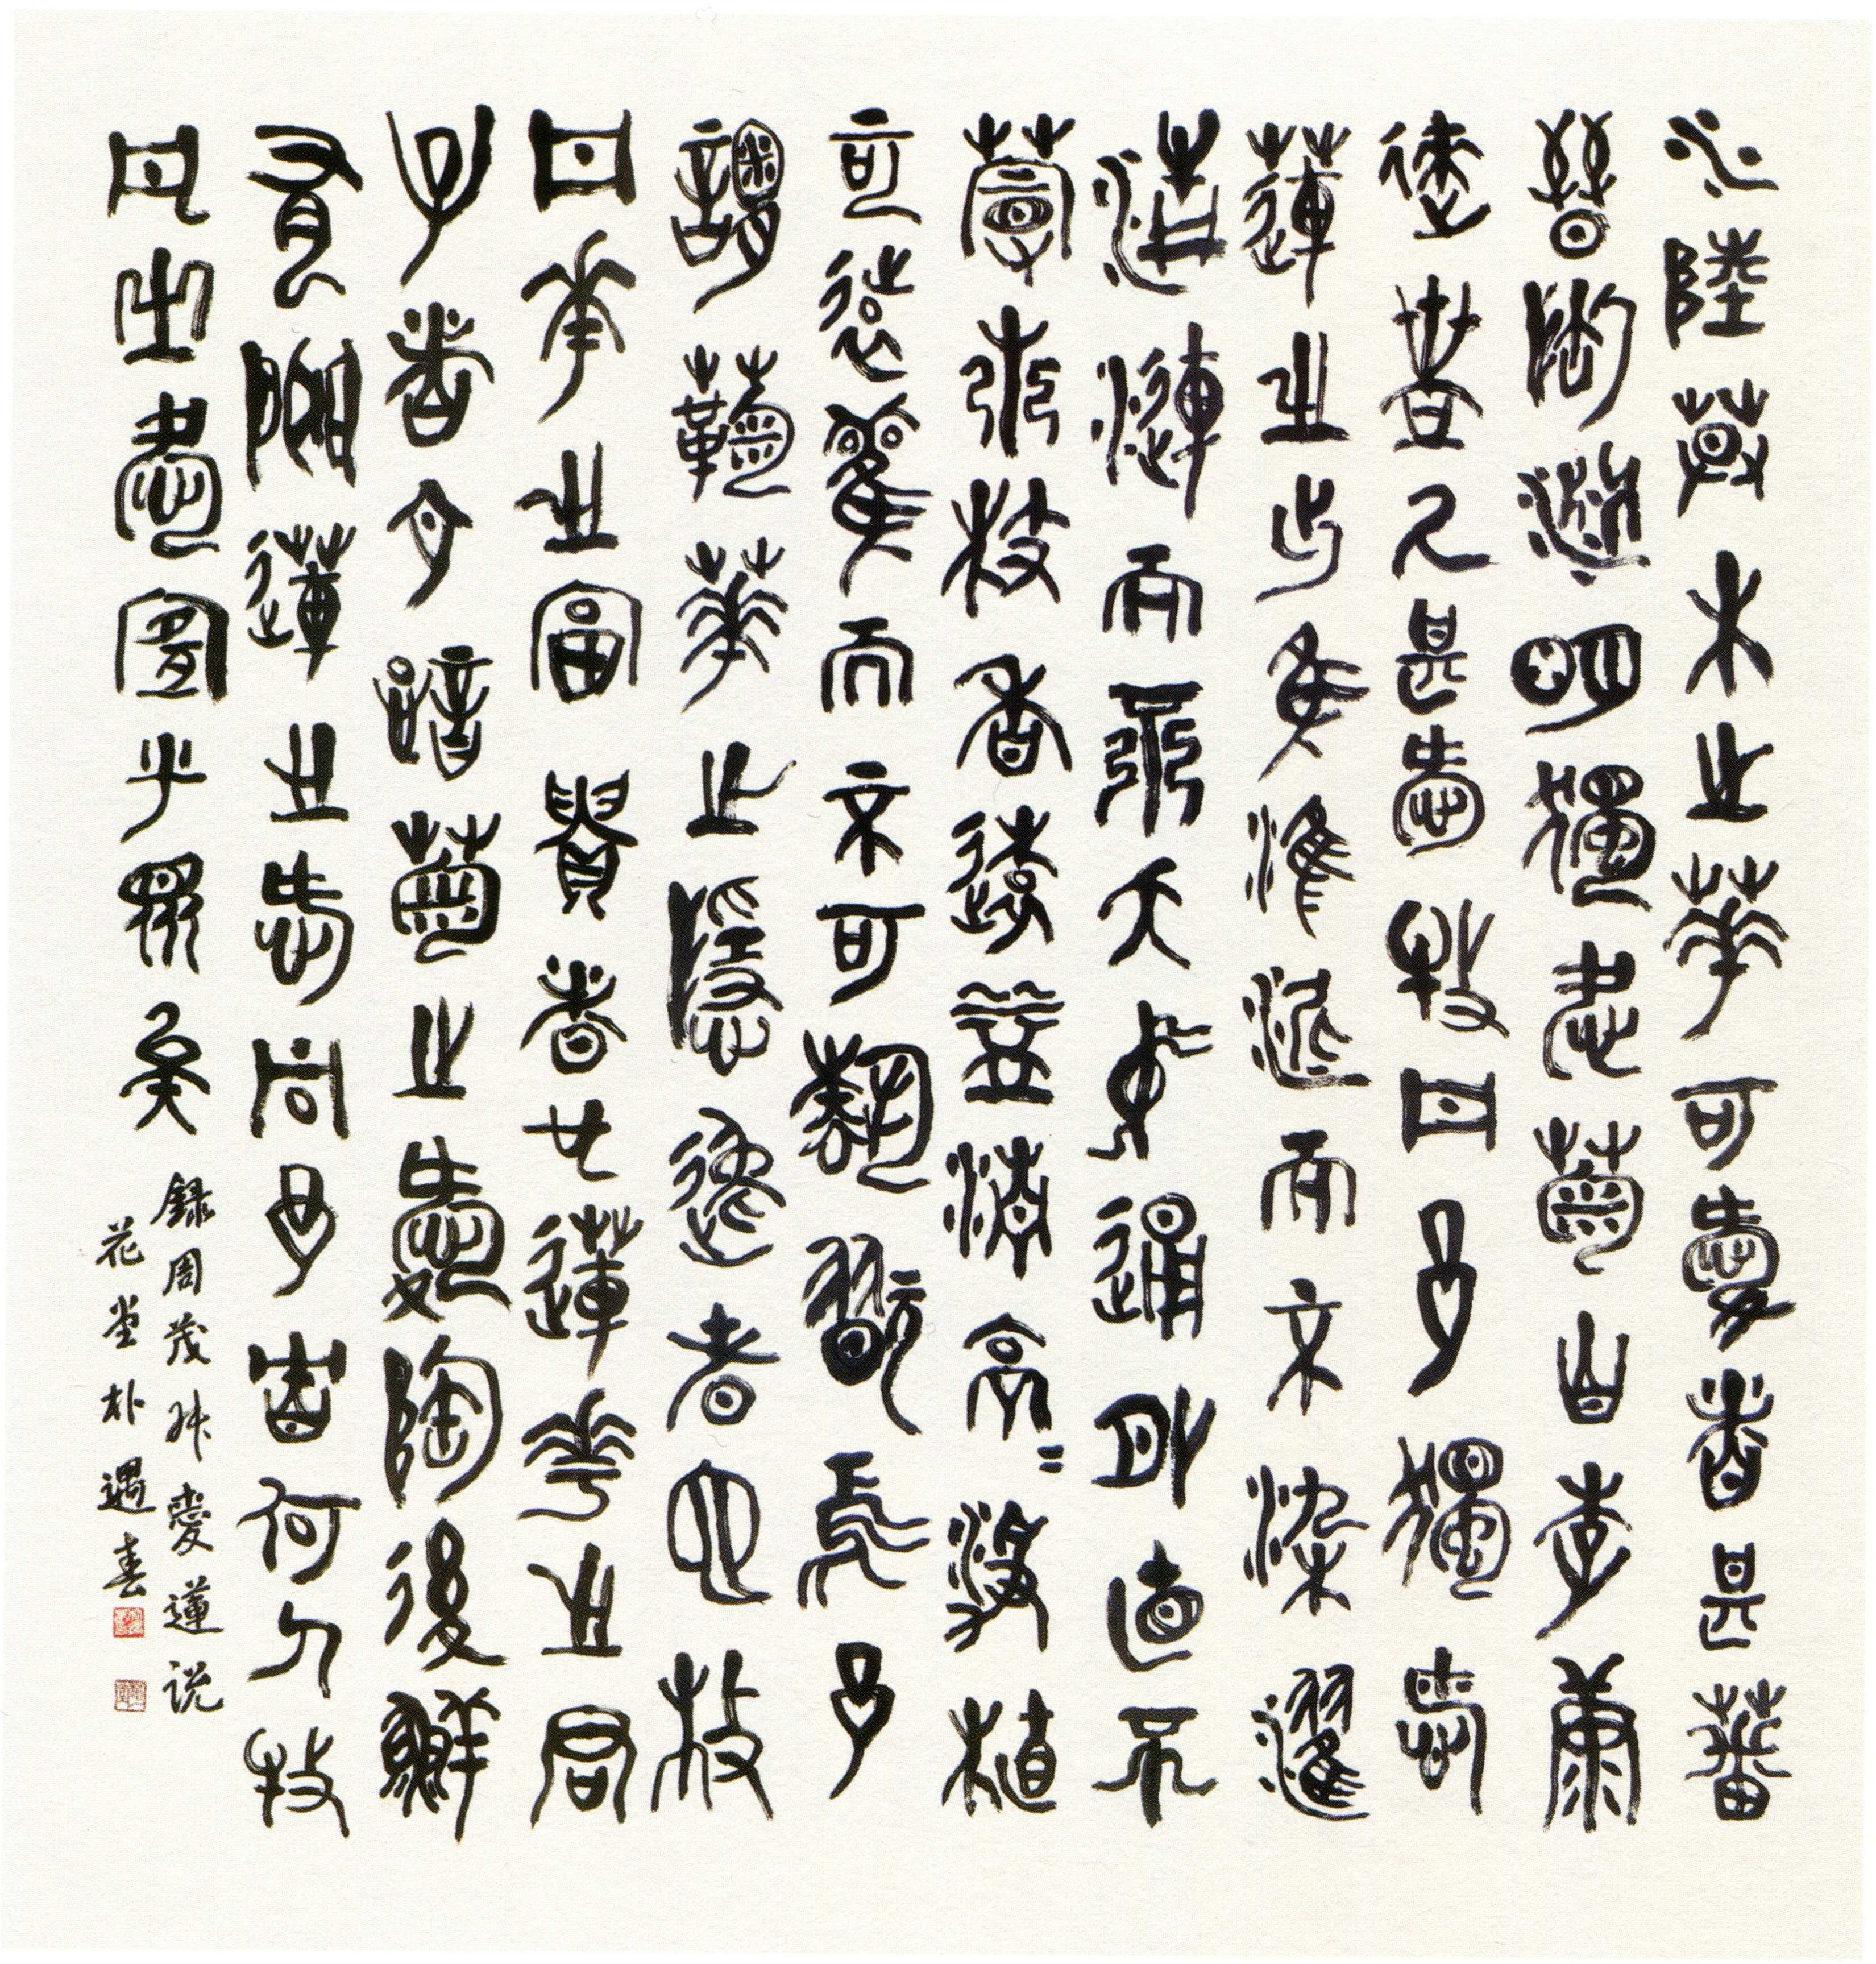 水陸草木之華可愛者甚蕃
晉陶淵明獨愛菊自李唐
徠世人甚愛牡丹予獨愛
蓮之出於淤泥而不染濯
清漣而不夭中通外直不
蔓不枝香遠益清亭〻淨植
可遠觀而不可翫焉予
謂菊華之隱逸者也牡
丹華之富貴者也蓮華之君
子者也噫菊之愛陶後鮮
有聞蓮之愛同予者何人牡
丹之愛宜乎衆矣
錄周茂叔愛蓮說
花堂朴遇春